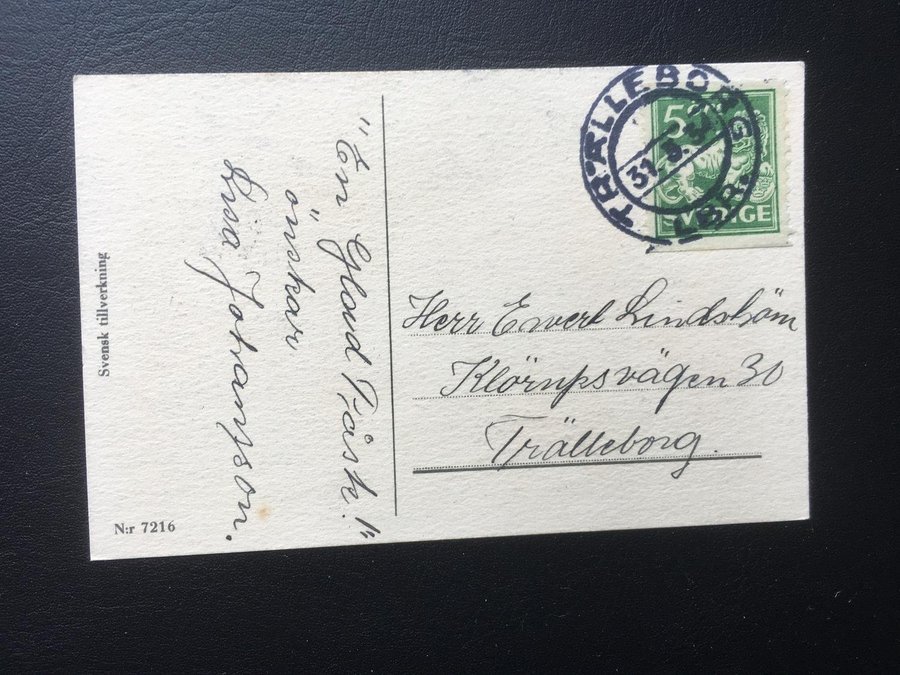 "En Glad Påsk!"
önskar
Lisa Johansson.
Svensk tillverkning
N:r 7216
TRÄLLEBORG
31.3.34
LBR.
5
SVERIGE
Herr Ewert Lindström
Klörupsvägen 30
Trälleborg.